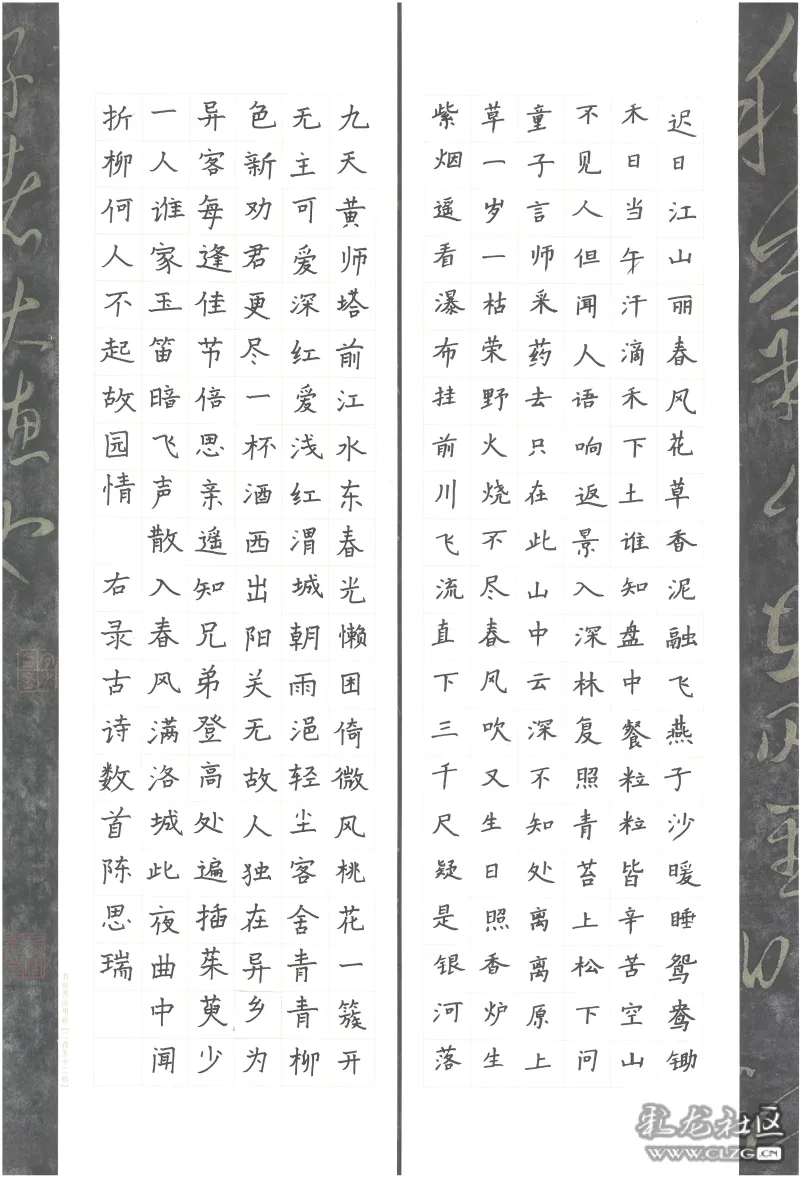 迟日江山丽春风花草香泥融飞燕子沙暖睡鸳鸯锄
禾日当午汗滴禾下土谁知盘中餐粒粒皆辛苦空山
不见人但闻人语响返景入深林复照青苔上松下问
童子言师采药去只在此山中云深不知处离离原上
草一岁一枯荣野火烧不尽春风吹又生日照香炉生
紫烟遥看瀑布挂前川飞流直下三千尺疑是银河落
九天黄师塔前江水东春光懒困倚微风桃花一簇开
无主可爱深红爱浅红渭城朝雨浥轻尘客舍青青柳
色新劝君更尽一杯酒西出阳关无故人独在异乡为
异客每逢佳节倍思亲遥知兄弟登高处遍插茱萸少
一人谁家玉笛暗飞声散入春风满洛城此夜曲中闻
折柳何人不起故园情 右录古诗数首陈思瑞
彩龙社区
www.CLZG.CN